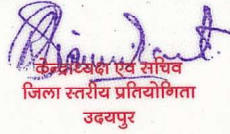 केन्द्राध्यक्ष एवं सचिव
जिला स्तरीय प्रतियोगिता
उदयपुर